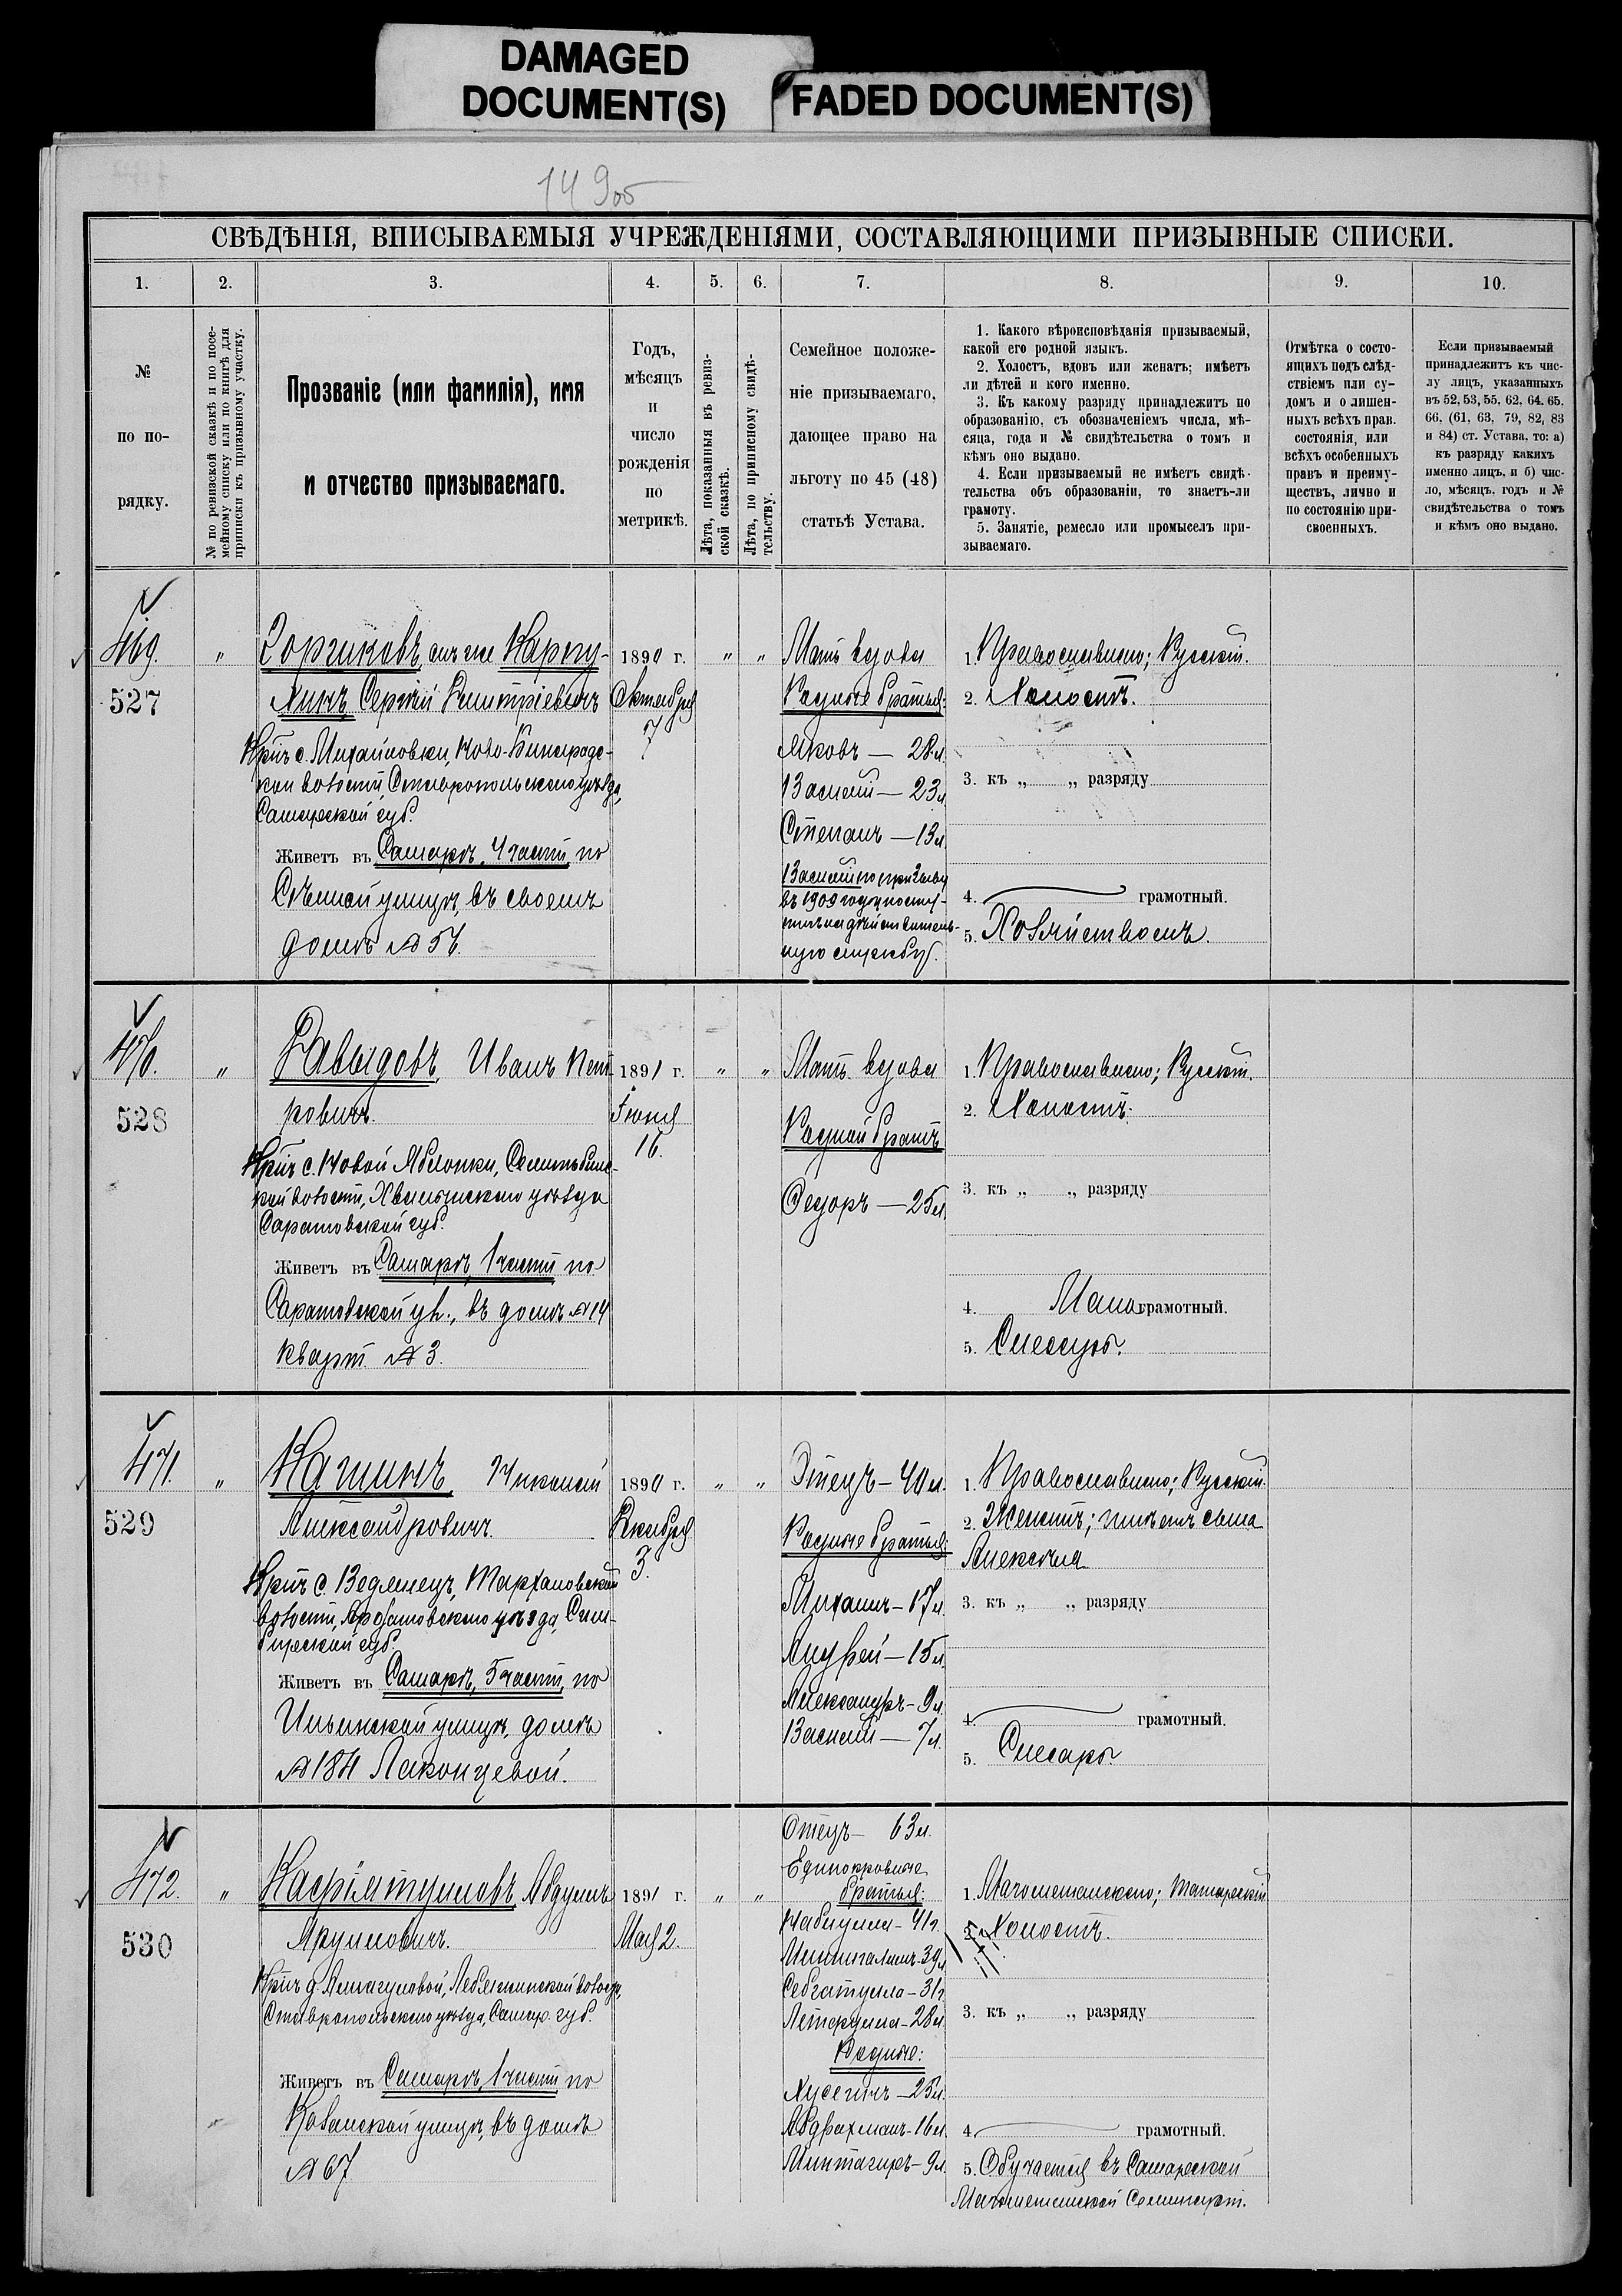 DAMAGED
DOCUMENT(S)
FADED DOCUMENT(S)
149об
СВѢДѢНІЯ, ВПИСЫВАЕМЫЯ УЧРЕЖДЕНІЯМИ, СОСТАВЛЯЮЩИМИ ПРИЗЫВНЫЕ СПИСКИ.
1. 2. 3. 4. 5. 6. 7. 8. 9. 10.
№
по по-
рядку.
№ по ревизской сказкѣ и по посе-
мейному списку или по книгѣ для
приписки къ призывному участку.
Прозваніе (или фамилія), имя
и отчество призываемаго.
Годъ,
мѣсяцъ
и
число
рожденія
по
метрикѣ.
Лѣта, показанныя въ ревиз-
ской сказкѣ.
Лѣта, по приписному свидѣ-
тельству.
Семейное положе-
ніе призываемаго,
дающее право на
льготу по 45 (48)
статьѣ Устава.
1. Какого вѣроисповѣданія призываемый,
какой его родной языкъ.
2. Холостъ, вдовъ или женатъ; имѣетъ
ли дѣтей и кого именно.
3. Къ какому разряду принадлежитъ по
образованію, съ обозначеніемъ числа, мѣ-
сяца, года и № свидѣтельства о томъ и
кѣмъ оно выдано.
4. Если призываемый не имѣетъ свидѣ-
тельства объ образованіи, то знаетъ-ли
грамоту.
5. Занятіе, ремесло или промыселъ при-
зываемаго.
Отмѣтка о состо-
ящихъ подъ слѣд-
ствіемъ или су-
домъ и о лишен-
ныхъ всѣхъ прав.
состоянія, или
всѣхъ особенныхъ
правъ и преиму-
ществъ, лично и
по состоянію при-
своенныхъ.
Если призываемый
принадлежитъ къ чис-
лу лицъ, указанныхъ
въ 52, 53, 55, 62, 64, 65,
66, (61, 63, 79, 82, 83
и 84) ст. Устава, то: а)
къ разряду какихъ
именно лицъ, и б) чис-
ло, мѣсяцъ, годъ и №
свидѣтельства о томъ
и кѣмъ оно выдано.
469.
527
"
Горшковъ, онъ же Карпу-
хинъ, Сергѣй Дмитріевичъ
Кр-нъ с. Михайловки, Ново-Бинарадс-
кой волости, Ставропольскаго уѣзда,
Самарской губ.
Живетъ въ Самарѣ, 4 части, по
Сѣнной улицѣ, въ своемъ
домѣ № 56.
1890 г.
Октября
7
" "
Мать вдова
Родные братья:
Яковъ — 28 л.
Василій — 23 л.
Степанъ — 13 л.
Василій по призыву
въ 1909 году посту-
пилъ на дѣйствитель-
ную службу.
1. Православнаго; Русскій.
2. Холостъ.
3. къ „ „ разряду
4. грамотный.
5. Хозяйствомъ.
470.
528
"
Давыдовъ, Иванъ Пет-
ровичъ.
Кр-нъ с. Новой Яблонки,
кой волости, Хвалынскаго уѣзда
Саратовской губ.
Живетъ въ Самарѣ, 1 части, по
Саратовской ул., въ домѣ № 14
кварт. № 3.
1891 г.
Іюня
16.
" "
Мать вдова
Родной братъ
Ѳедоръ — 25 л.
1. Православнаго; Русскій.
2. Холостъ.
3. къ „ „ разряду
4. Мало грамотный.
5. Слесарь.
471.
529
"
Кашинъ, Николай
Александровичъ.
Кр-нъ с. Ведянецъ, Тархановской
волости, Ардатовскаго уѣзда, Сим-
бирской губ.
Живетъ въ Самарѣ, 5 части, по
Ильинской улицѣ, домъ
№ 184 Лаконцевой.
1890 г.
Декабря
3.
" "
Отецъ — 40 л.
Родные братья:
Михаилъ — 17 л.
Андрей — 15 л.
Александръ — 9 л.
Василій — 7 л.
1. Православнаго; Русскій.
2. Женатъ; имѣетъ сына
Алексѣя
3. къ „ „ разряду
4. грамотный.
5. Слесарь.
472.
530
"
Кафіятулловъ, Абдулъ
Ярулловичъ.
Кр-нъ д. Лебяжинской волости,
Ставропольскаго уѣзда, Самар. губ.
Живетъ въ Самарѣ, 1 части, по
Казанской улицѣ, въ домѣ
№ 67
1891 г.
Мая 2.
" "
Отецъ — 63 л.
Единокровные
братья:
Набиулла — 41 г.
39 л.
Себгатулла — 31 г.
28 л.
Родные:
Хусеинъ — 25 л.
Абдрахманъ — 16 л.
Минтагиръ — 9 л.
1. Магометанскаго; татарскій
2. Холостъ.
3. къ „ „ разряду
4. грамотный.
5. Обучается въ Самарской
Магометанской Семинаріи.